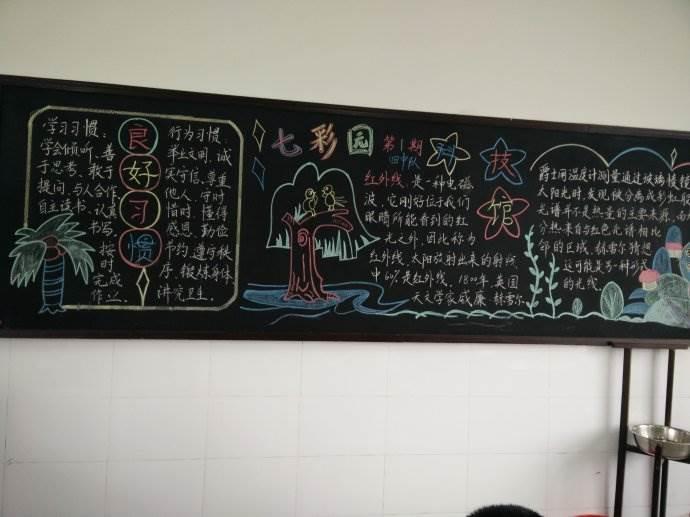 学习习惯：
学会倾听、善
于思考、敢于
提问、与人合作
自主读书、认真
书写、
按
时
完成
作业.
良
好
习
惯
行为习惯：
举止文明、诚
实守信、尊重
他人、守时
惜时、懂得
感恩、勤俭
节约、遵守秩
序、锻炼身体
讲究卫生.
七彩园
第1期
四中队
红外线：是一种电磁
波，它刚好位于我们
眼睛所能看到的红
光之外，因此称为
红外线。太阳放射出来的射线
中60%是红外线。1800年，英国
天文学家威廉·赫歇尔
科
技
馆
爵士用温度计测量通过玻璃棱镜
太阳光时，发现被分离成彩虹
光谱并不是热量的主要来源，而
分热来自与红色光谱相比
邻的区域。赫歇尔猜想
这可能是另一种形式
的光线。